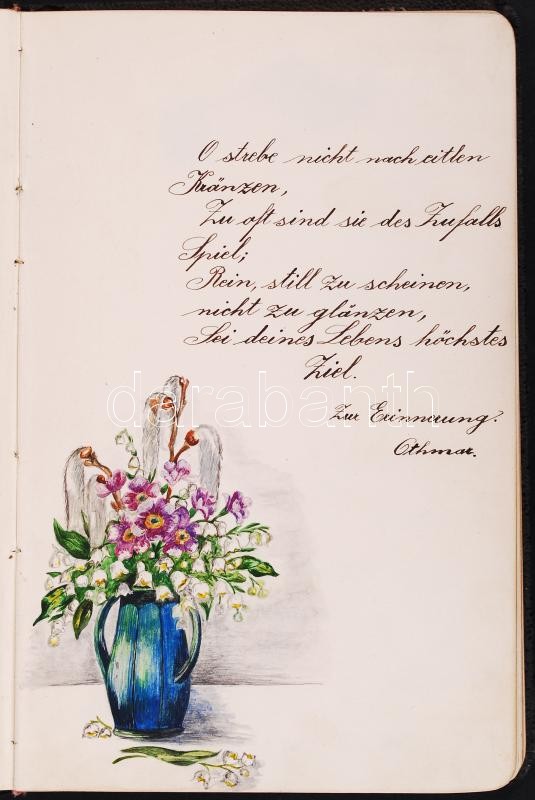 O strebe nicht nach eitlen
Kränzen,
Zu oft sind sie des Zufalls
Spiel;
Rein, still zu scheinen,
nicht zu glänzen,
Sei deines Lebens höchstes
Ziel.
darabanth
Zur Erinnerung.
Othmar.